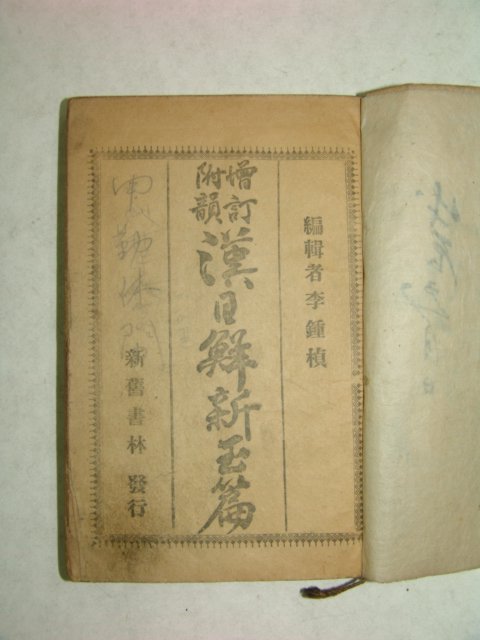 編輯者 李鍾楨
增訂
附韻
漢日鮮新玉篇
新舊書林 發行